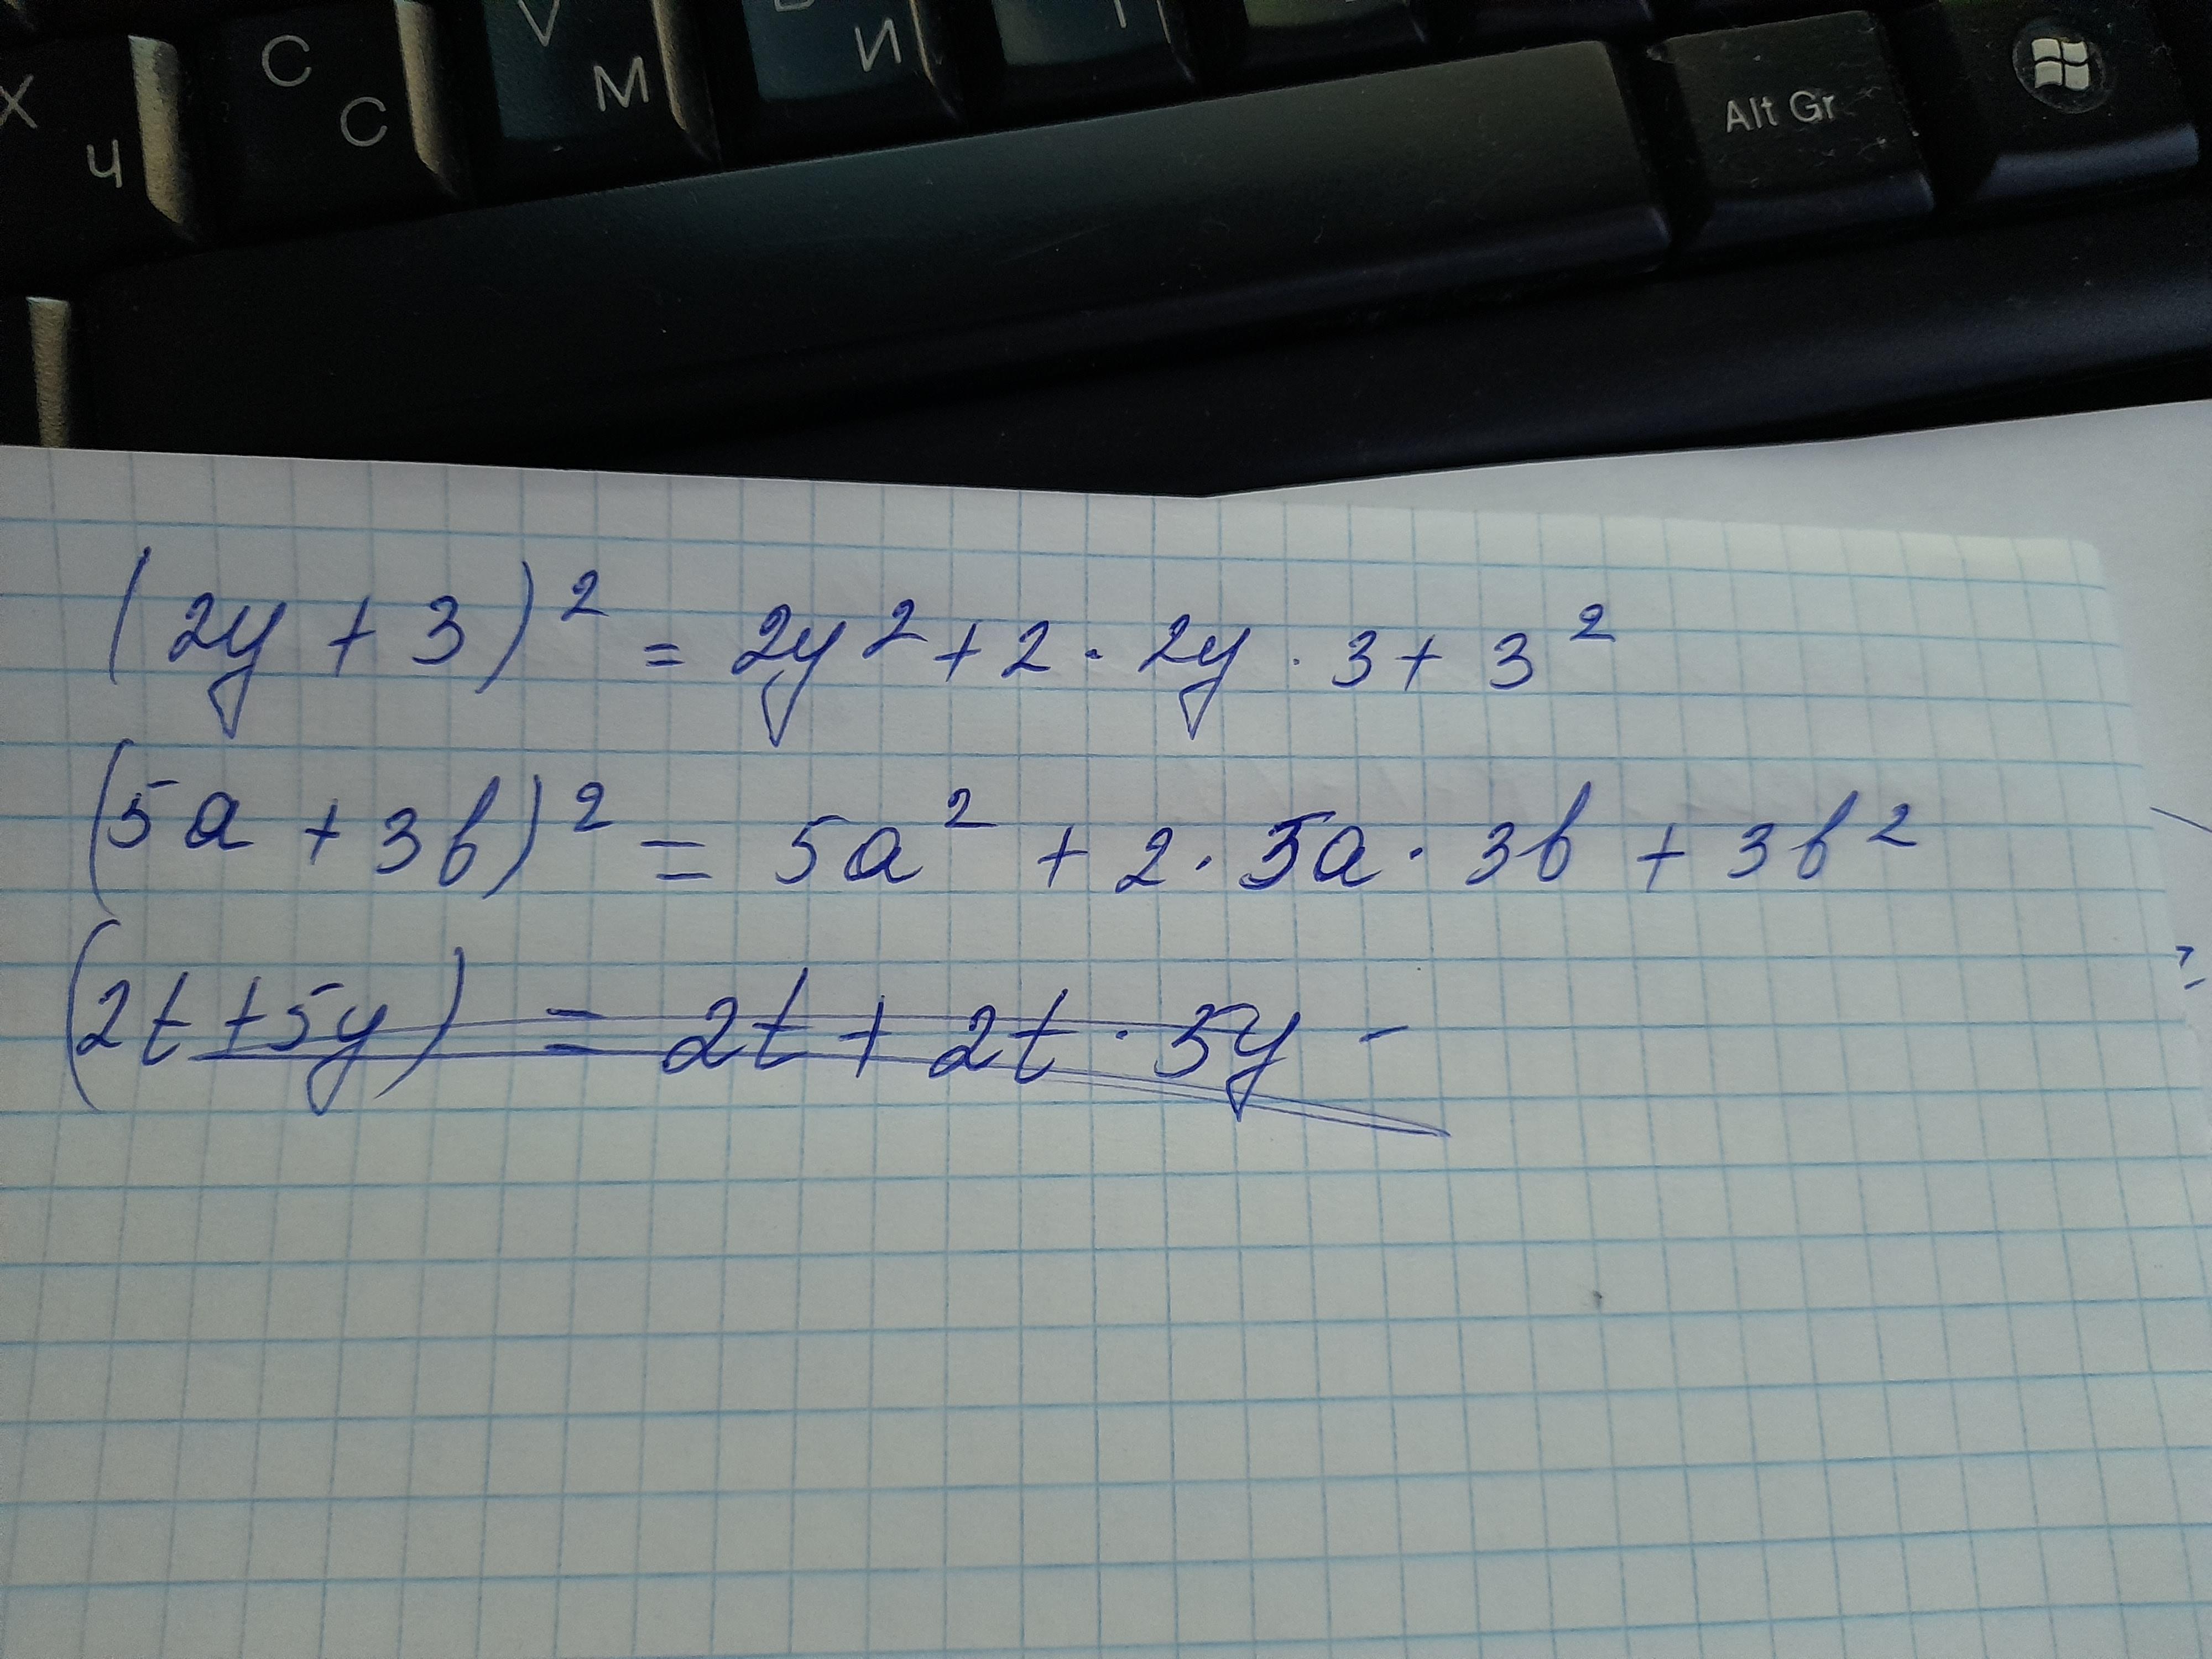 Х Ч С С V М И Alt Gr
(2y + 3)² = 2y² + 2 · 2y · 3 + 3²
(5a + 3b)² = 5a² + 2 · 5a · 3b + 3b²
(2t + 5y) = 2t + 2t · 5y -